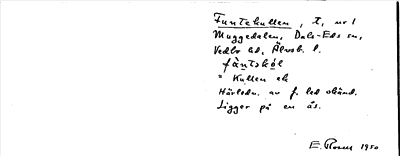 Funtekullen, t, nr 1
Muggedalen, Dals-Eds sn,
Vedbo hd, Älvsb. l.
fàntskǫ́l
= Kullen ek
Härledn. av f. led okänd.
Ligger på en ås.
E. Rosen 1950